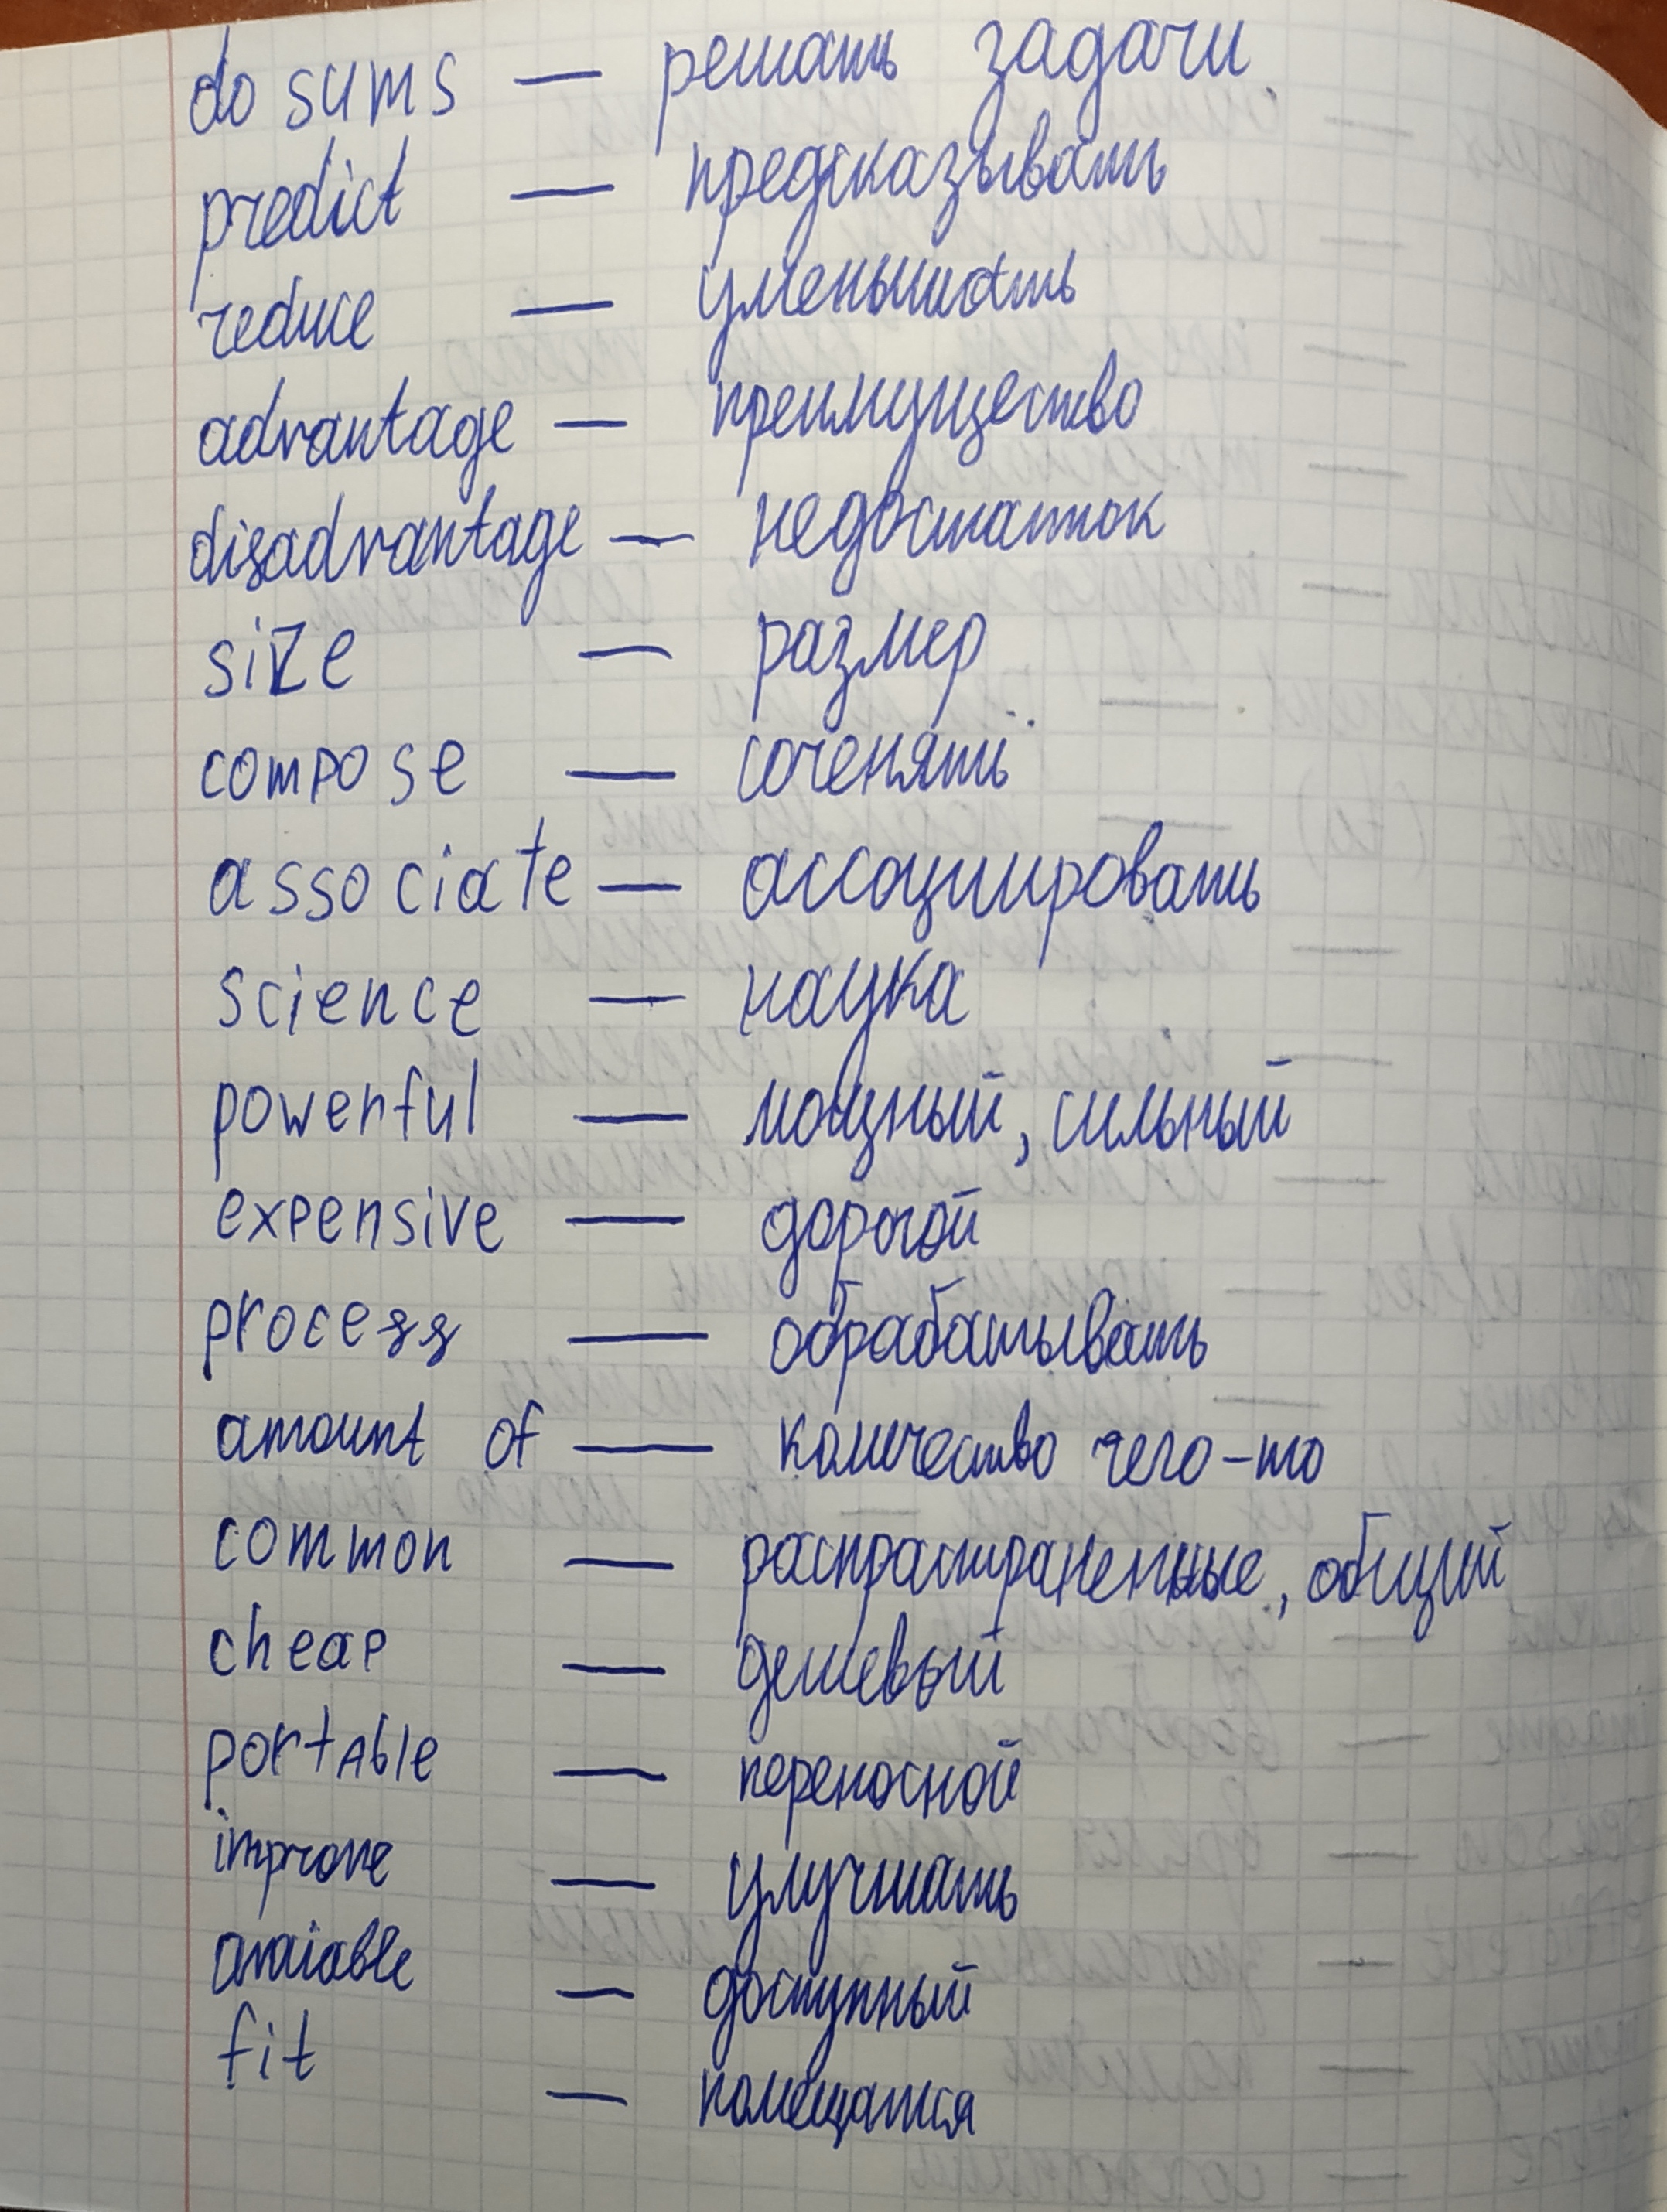 do sums — решать задачи
predict — предсказывать
reduce — уменьшать
advantage — преимущество
disadvantage — недостаток
size — размер
compose — соченять
associate — ассоциировать
science — наука
powerful — мощный, сильный
expensive — дорогой
process — обрабатывать
amount of — количество чего-то
common — распрастраненные, общий
cheap — дешевый
portable — переносной
improve — улучшать
avaiable — доступный
fit — помещатся